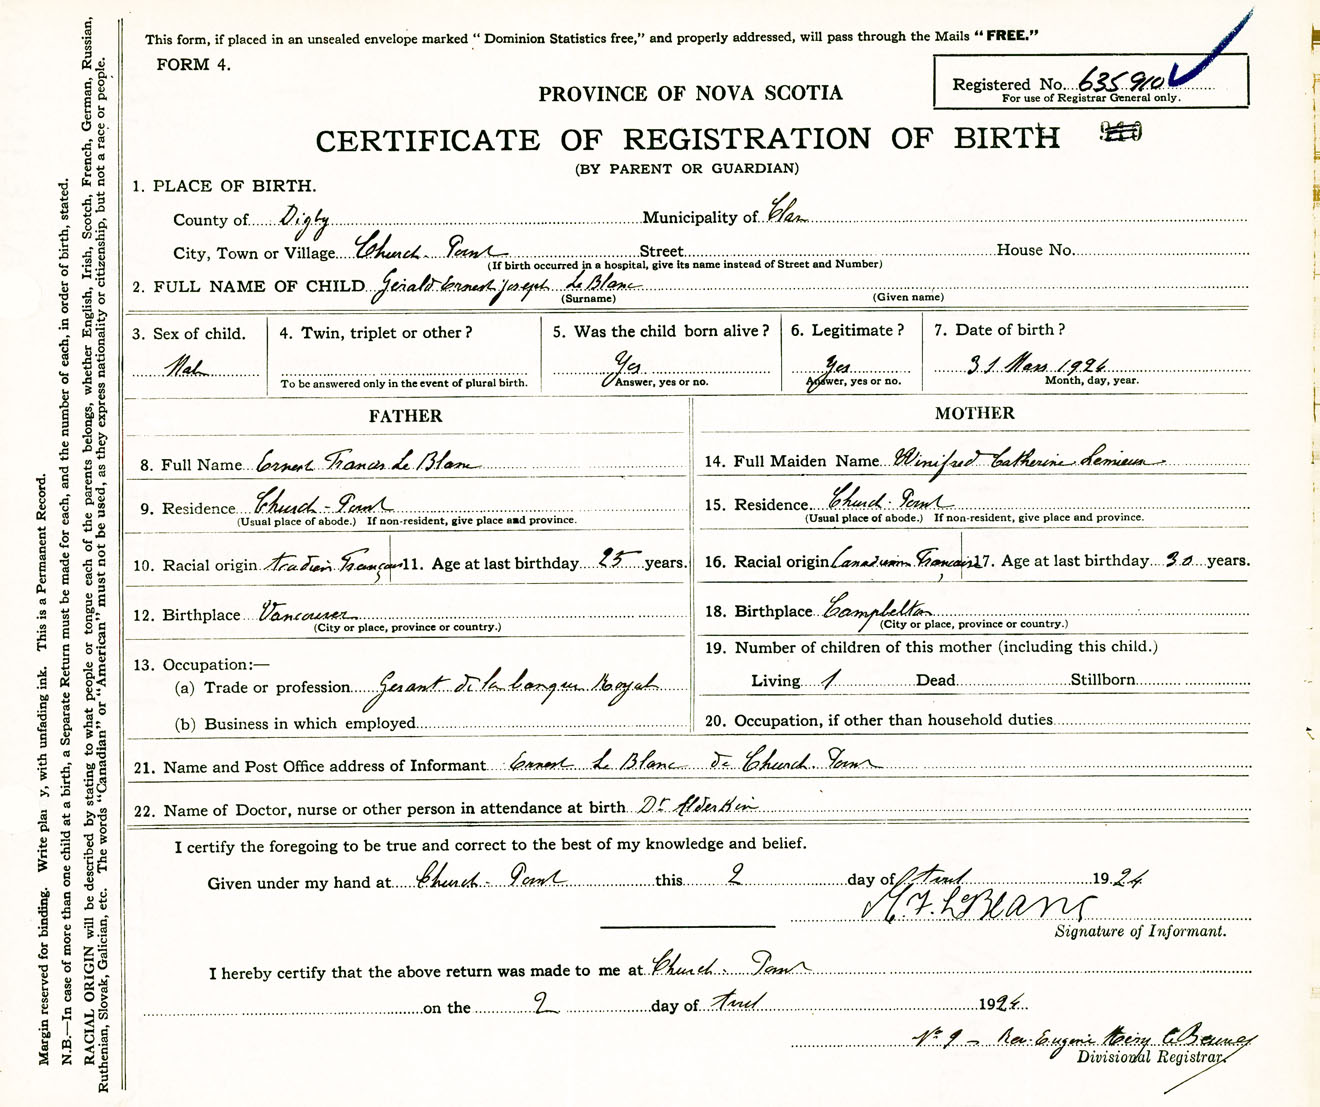 This form, if placed in an unsealed envelope marked “ Dominion Statistics free,” and properly addressed, will pass through the Mails “FREE.”
FORM 4.
Registered No. 635910
For use of Registrar General only.
PROVINCE OF NOVA SCOTIA
CERTIFICATE OF REGISTRATION OF BIRTH
(BY PARENT OR GUARDIAN)
1. PLACE OF BIRTH.
County of Digby Municipality of Clare
City, Town or Village Church-Point Street House No.
(If birth occurred in a hospital, give its name instead of Street and Number)
2. FULL NAME OF CHILD Gerald Ernest Joseph Le Blanc
(Surname) (Given name)
3. Sex of child. 4. Twin, triplet or other? 5. Was the child born alive? 6. Legitimate? 7. Date of birth?
Male Yes Yes 31 Mars 1924
To be answered only in the event of plural birth. Answer, yes or no. Answer, yes or no. Month, day, year.
FATHER MOTHER
8. Full Name Ernest Francis Le Blanc 14. Full Maiden Name Winifred Catherine Lemieux
9. Residence Church-Point 15. Residence Church-Point
(Usual place of abode.) If non-resident, give place and province. (Usual place of abode.) If non-resident, give place and province.
10. Racial origin Acadien Français 11. Age at last birthday 25 years. 16. Racial origin Français 17. Age at last birthday 30 years.
12. Birthplace Vancouver 18. Birthplace Campbelton
(City or place, province or country.) (City or place, province or country.)
13. Occupation:— 19. Number of children of this mother (including this child.)
(a) Trade or profession Gerant de la banque Royal Living 1 Dead Stillborn
(b) Business in which employed 20. Occupation, if other than household duties
21. Name and Post Office address of Informant Ernest Le Blanc de Church-Point
22. Name of Doctor, nurse or other person in attendance at birth Dr Elderkin
I certify the foregoing to be true and correct to the best of my knowledge and belief.
Given under my hand at Church-Point this 2 day of Avril 1924
F. LeBlanc
Signature of Informant.
I hereby certify that the above return was made to me at Church-Point
on the 2 day of Avril 1924
No 9 - Rev. Eugene
Divisional Registrar.
Margin reserved for binding. Write pla y, with unfading ink. This is a Permanent Record.
N.B.—In case of more than one child at a birth, a Separate Return must be made for each, and the number of each, in order of birth, stated.
RACIAL ORIGIN will be described by stating to what people or tongue each of the parents belongs, whether English, Irish, Scotch, French, German, Russian,
Ruthenian, Slovak, Galician, etc. The words “Canadian” or “American” must not be used, as they express nationality or citizenship, but not a race or people.